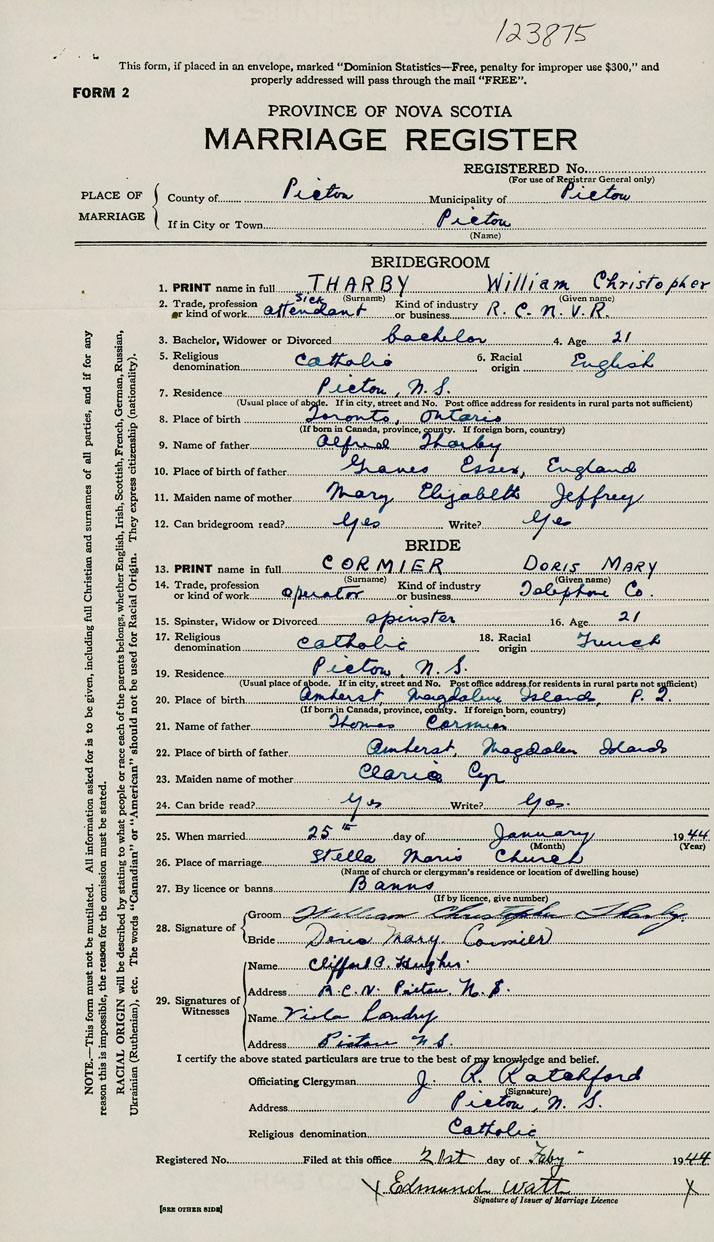 123875
This form, if placed in an envelope, marked "Dominion Statistics—Free, penalty for improper use $300," and
properly addressed will pass through the mail "FREE".
FORM 2
PROVINCE OF NOVA SCOTIA
MARRIAGE REGISTER
REGISTERED No.
(For use of Registrar General only)
PLACE OF MARRIAGE
County of Pictou Municipality of Pictou
If in City or Town Pictou
(Name)
BRIDEGROOM
1. PRINT name in full THARBY William Christopher
(Surname) (Given name)
2. Trade, profession or kind of work sick attendant Kind of industry or business R. C. N. V. R.
3. Bachelor, Widower or Divorced bachelor 4. Age 21
5. Religious denomination Catholic 6. Racial origin English
7. Residence Pictou, N.S.
(Usual place of abode. If in city, street and No. Post office address for residents in rural parts not sufficient)
8. Place of birth Toronto, Ontario
(If born in Canada, province, county. If foreign born, country)
9. Name of father Alfred Tharby
10. Place of birth of father Graves Essex, England
11. Maiden name of mother Mary Elizabeth Jeffrey
12. Can bridegroom read? Yes Write? Yes
BRIDE
13. PRINT name in full CORMIER DORIS MARY
(Surname) (Given name)
14. Trade, profession or kind of work operator Kind of industry or business Telephone Co.
15. Spinster, Widow or Divorced spinster 16. Age 21
17. Religious denomination Catholic 18. Racial origin French
19. Residence Pictou, N. S.
(Usual place of abode. If in city, street and No. Post office address for residents in rural parts not sufficient)
20. Place of birth Amherst, Magdalen Islands, P. Q.
(If born in Canada, province, county. If foreign born, country)
21. Name of father Thomas Cormier
22. Place of birth of father Amherst, Magdalen Islands
23. Maiden name of mother Cyr
24. Can bride read? Yes Write? Yes.
25. When married 25th day of January 1944
(Month) (Year)
26. Place of marriage Stella Maris Church
(Name of church or clergyman's residence or location of dwelling house)
27. By licence or banns Banns
(If by licence, give number)
28. Signature of
Groom William Christopher Tharby
Bride Doris Mary Cormier
29. Signatures of Witnesses
Name Clifford A. Hughes
Address R.C.N. Pictou, N.S.
Name Viola Landry
Address Pictou N.S.
I certify the above stated particulars are true to the best of my knowledge and belief.
Officiating Clergyman J. R. Ratchford
(Signature)
Address Pictou, N. S.
Religious denomination Catholic
Registered No. Filed at this office 21st day of Feby 1944
X Edmund Watt X
Signature of Issuer of Marriage Licence
[SEE OTHER SIDE]
NOTE.—This form must not be mutilated. All information asked for is to be given, including full Christian and surnames of all parties, and if for any
reason this is impossible, the reason for the omission must be stated.
RACIAL ORIGIN will be described by stating to what people or race each of the parents belongs, whether English, Irish, Scottish, French, German, Russian,
Ukrainian (Ruthenian), etc. The words "Canadian" or "American" should not be used for Racial Origin. They express citizenship (nationality).